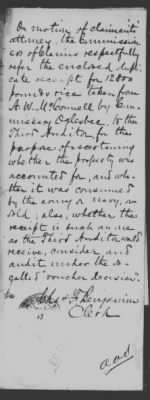 On motion of claimant's
attorney, the Commission-
ers of Claims respectfully
refer the enclosed dupli-
cate receipt for 12800
pounds rice taken from
A. W. McConnell by Com-
missary Oglesbee, to the
Third Auditor, for the
purpose of ascertaining
whether the property was
accounted for, and whe-
ther it was consumed
by the army or navy, or
sold; also, whether the
receipt is such an one
as the Third Auditor would
receive, consider and
audit under the so-
called "voucher decision".
Benjamin
Clerk